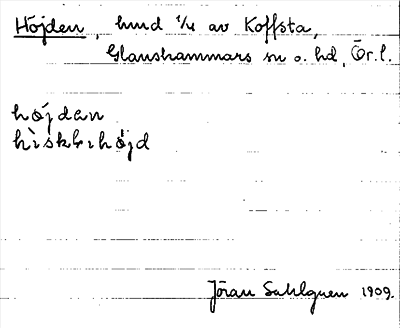 Höjden, hmd 1/4 av Koffsta,
Glanshammars sn o. hd, Ör. l.
höjdan
hiskbihöjd
Jöran Sahlgren 1909.